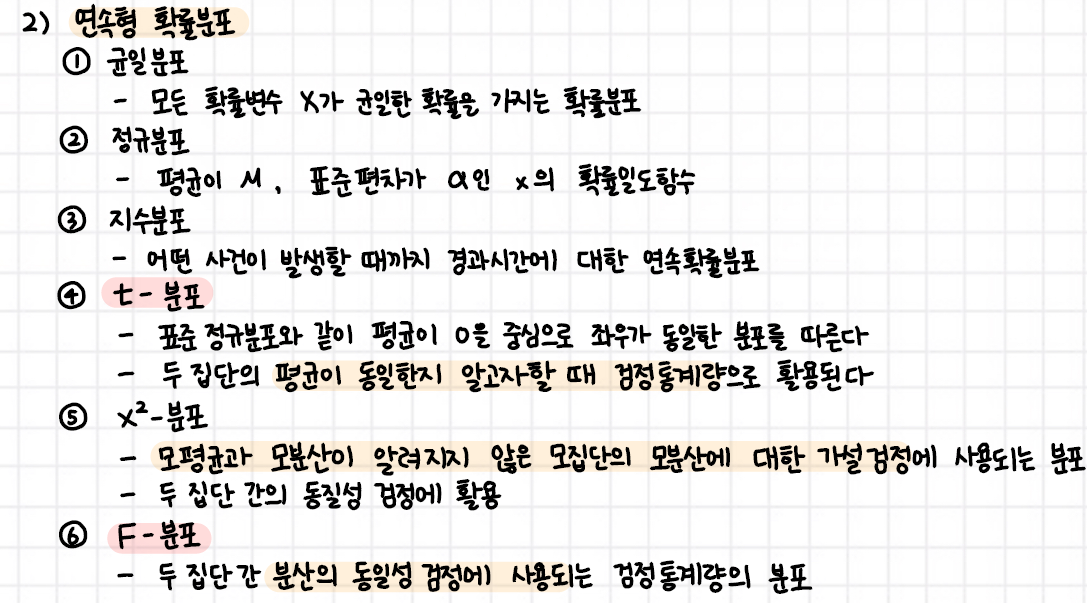 2) 연속형 확률분포
① 균일분포
- 모든 확률변수 X가 균일한 확률을 가지는 확률분포
② 정규분포
- 평균이 M, 표준편차가 α인 x의 확률일도함수
③ 지수분포
- 어떤 사건이 발생할 때까지 경과시간에 대한 연속확률분포
④ t-분포
- 표준 정규분포와 같이 평균이 0을 중심으로 좌우가 동일한 분포를 따른다
- 두 집단의 평균이 동일한지 알고자할 때 검정통계량으로 활용된다
⑤ x²-분포
- 모평균과 모분산이 알려지지 않은 모집단의 모분산에 대한 가설검정에 사용되는 분포
- 두 집단 간의 동질성 검정에 활용
⑥ F-분포
- 두 집단간 분산의 동일성 검정에 사용되는 검정통계량의 분포